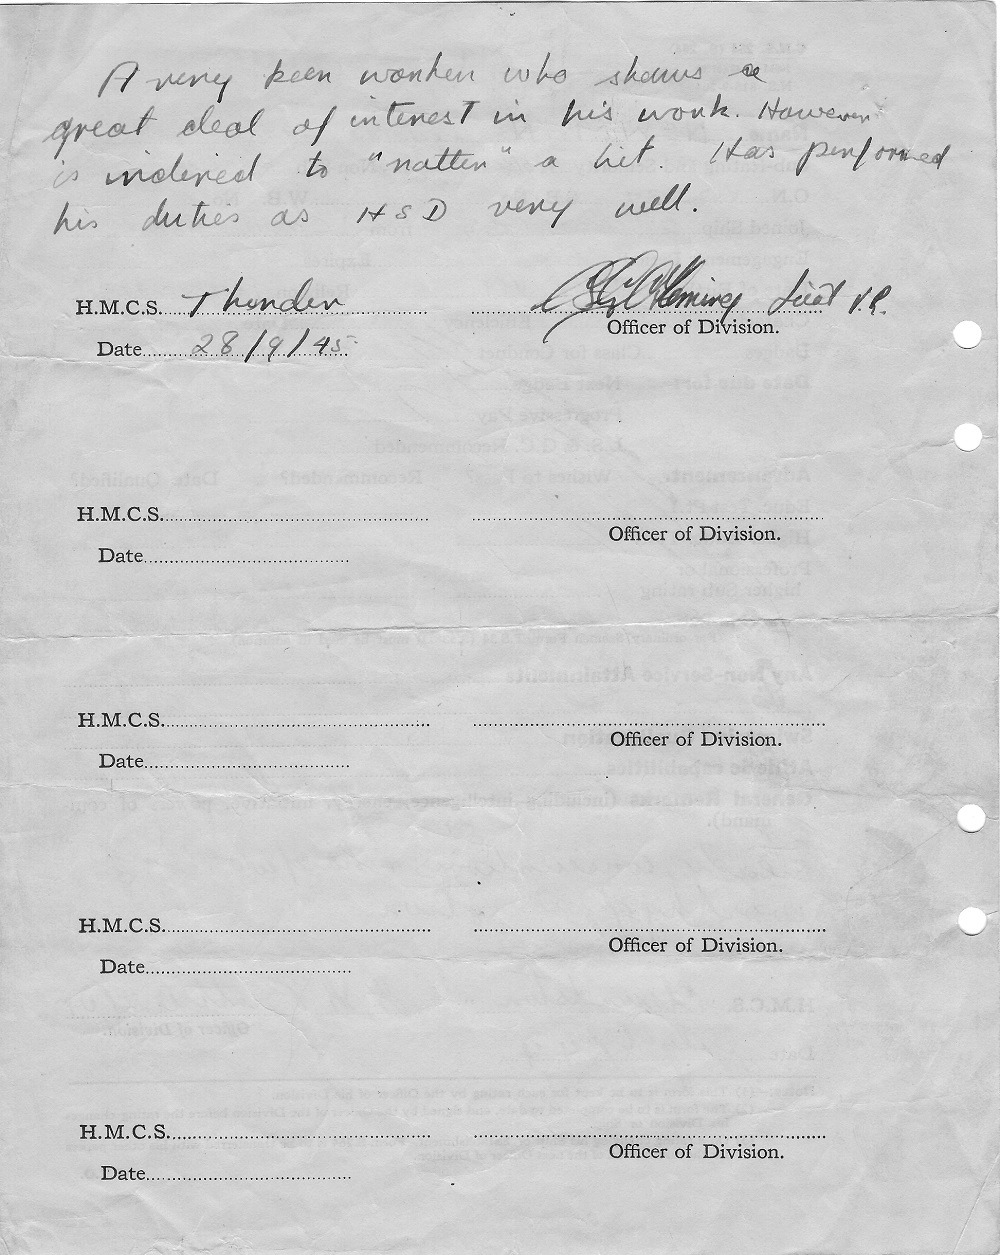 A very keen worker who shows a
great deal of interest in his work. However
is inclined to "natter" a bit Has performed
his duties as HSD very well.
H.M.C.S. Thunder Fleming Lieut V.R.
Officer of Division.
Date 28/9/45
H.M.C.S.
Officer of Division.
Date
H.M.C.S.
Officer of Division.
Date
H.M.C.S.
Officer of Division.
Date
H.M.C.S.
Officer of Division.
Date